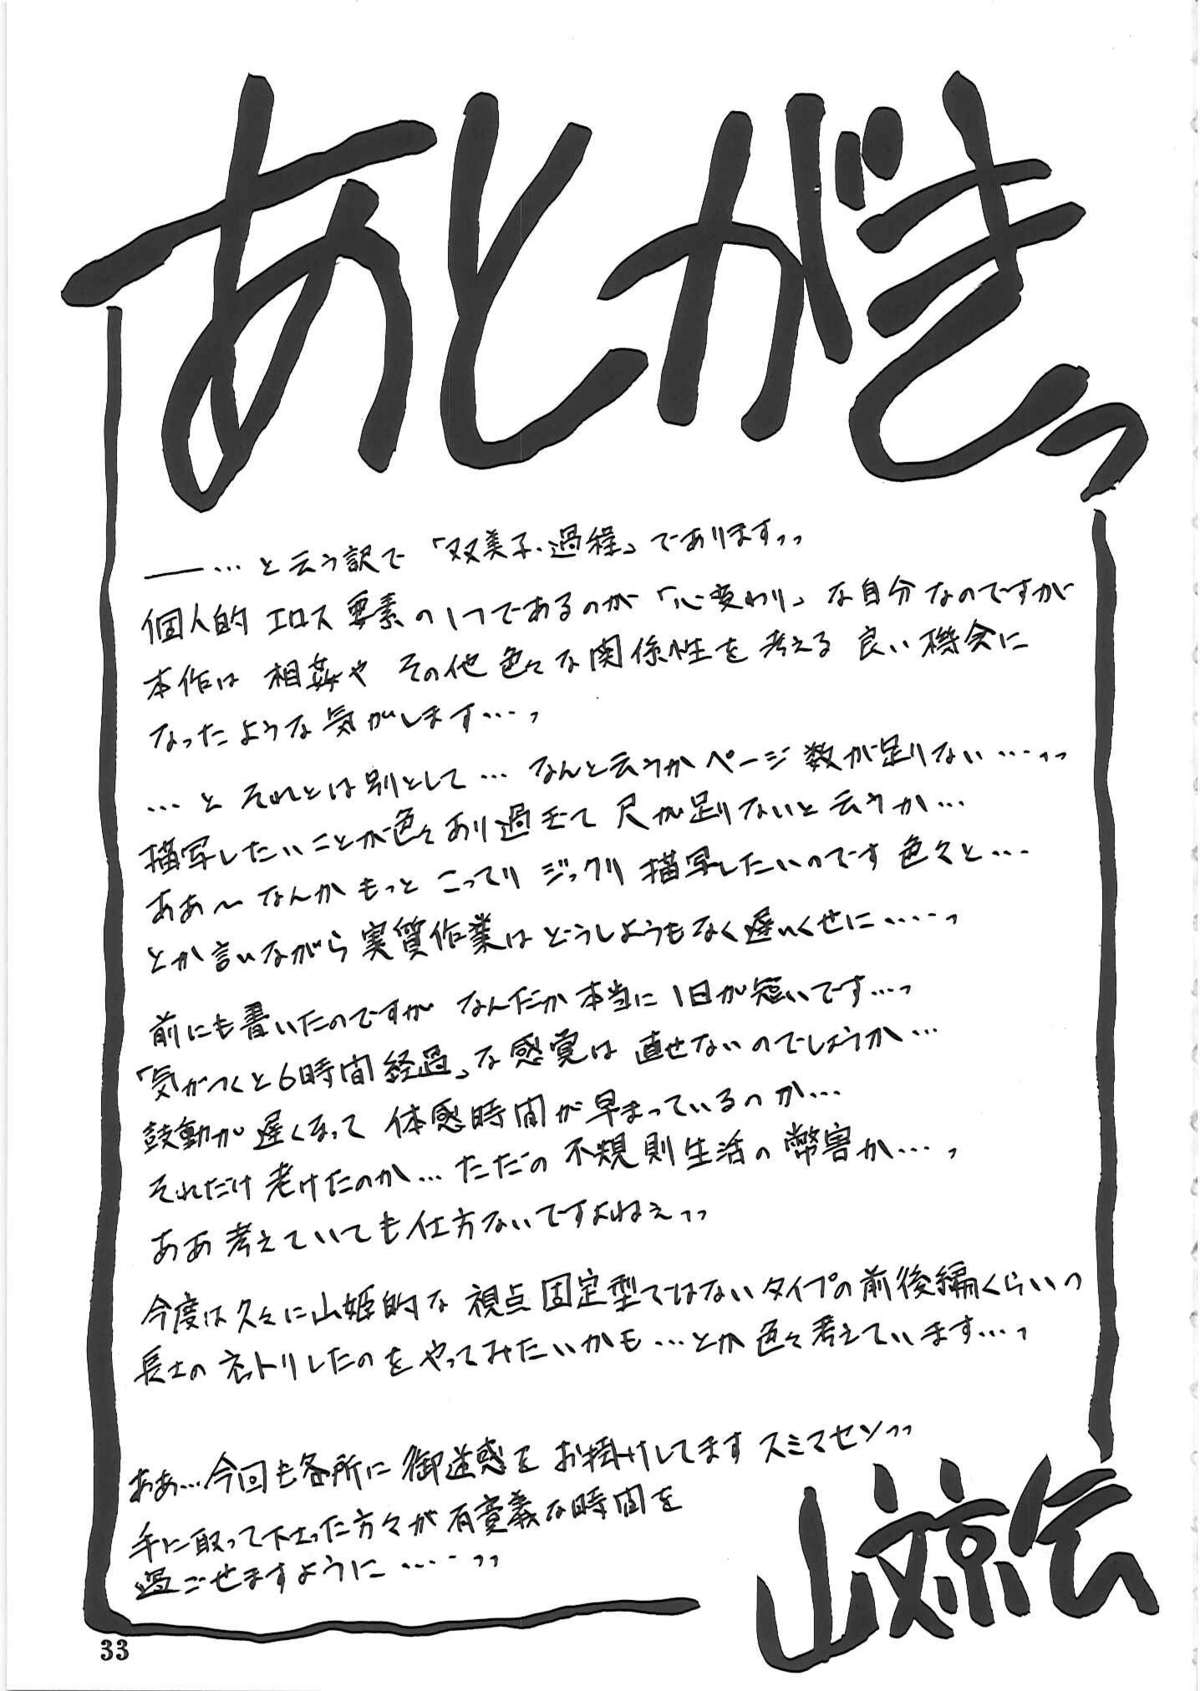 あとがきっ
――…と云う訳で「双美子・過程」でありますっっ
個人的エロス要素の1つであるのが「心変わり」な自分なのですが
本作は相姦やその他色々な関係性を考える良い機会に
なったような気がします…っ
…とそれとは別として…なんと云うかページ数が足りない…っっ
描写したいことが色々あり過ぎて尺が足りないと云うか…
ああ～なんかもっとこってりジックリ描写したいのです色々と…
とか言いながら実質作業はどうしようもなく遅いくせに……っ
前にも書いたのですがなんだか本当に1日が短いです…っ
「気がつくと6時間経過」な感覚は直せないのでしょうか…
鼓動が遅くなって体感時間が早まっているのか…
それだけ老けたのか…ただの不規則生活の弊害か…っ
ああ考えていても仕方ないですよねぇっっ
今度は久々に山姫的な視点固定型ではないタイプの前後編くらいっ
長士のネトリしたのをやってみたいかも…とか色々考えています…っ
ああ…今回も各所に御迷惑をお掛けしてますスミマセンっっ
手に取って下さった方々が有意義な時間を
過ごせますように……っっ
山文京伝
33